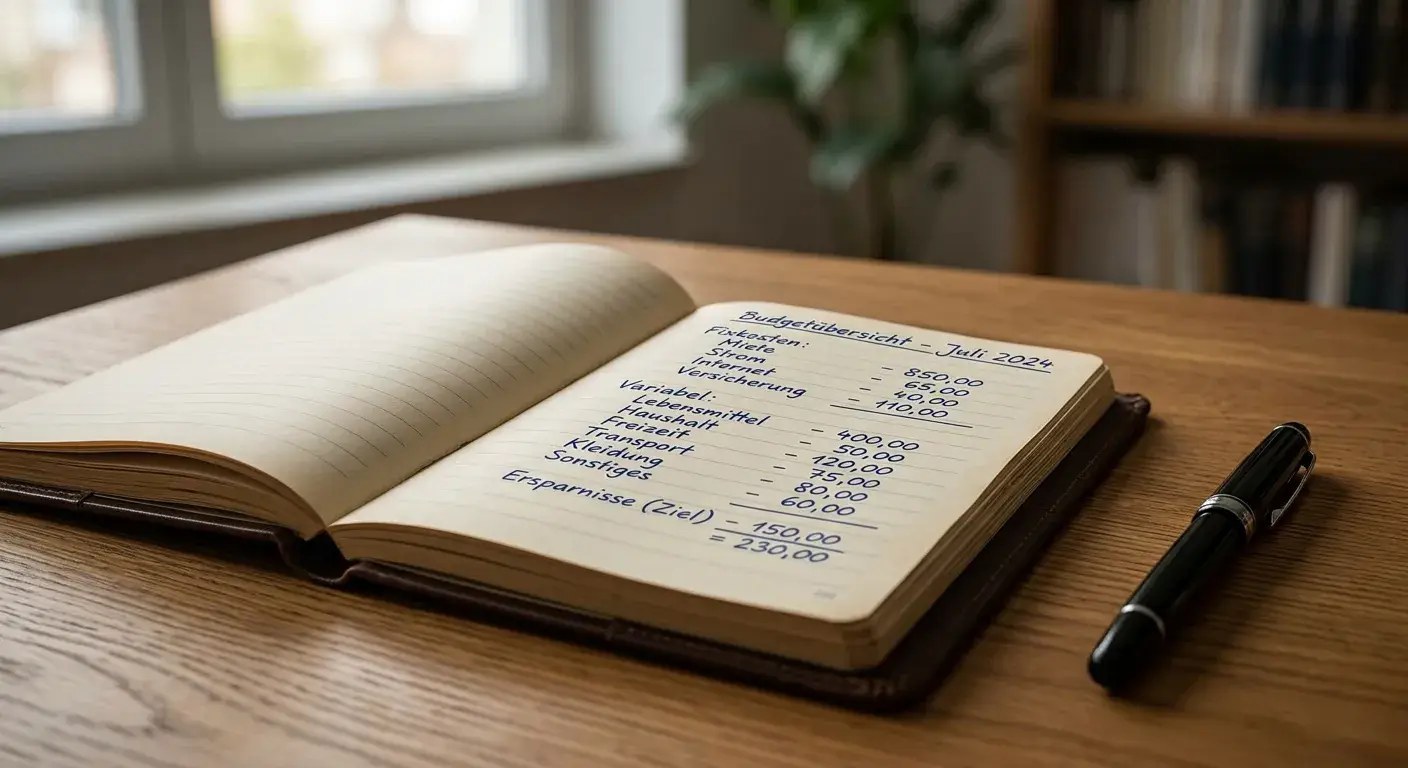 Budgetübersicht – Juli 2024
Fixkosten:
Miete - 850,00
Strom - 65,00
Internet - 40,00
Versicherung - 110,00
Variabel:
Lebensmittel - 400,00
Haushalt - 50,00
Freizeit - 120,00
Transport - 75,00
Kleidung - 80,00
Sonstiges - 60,00
Ersparnisse (Ziel) - 150,00
= 230,00